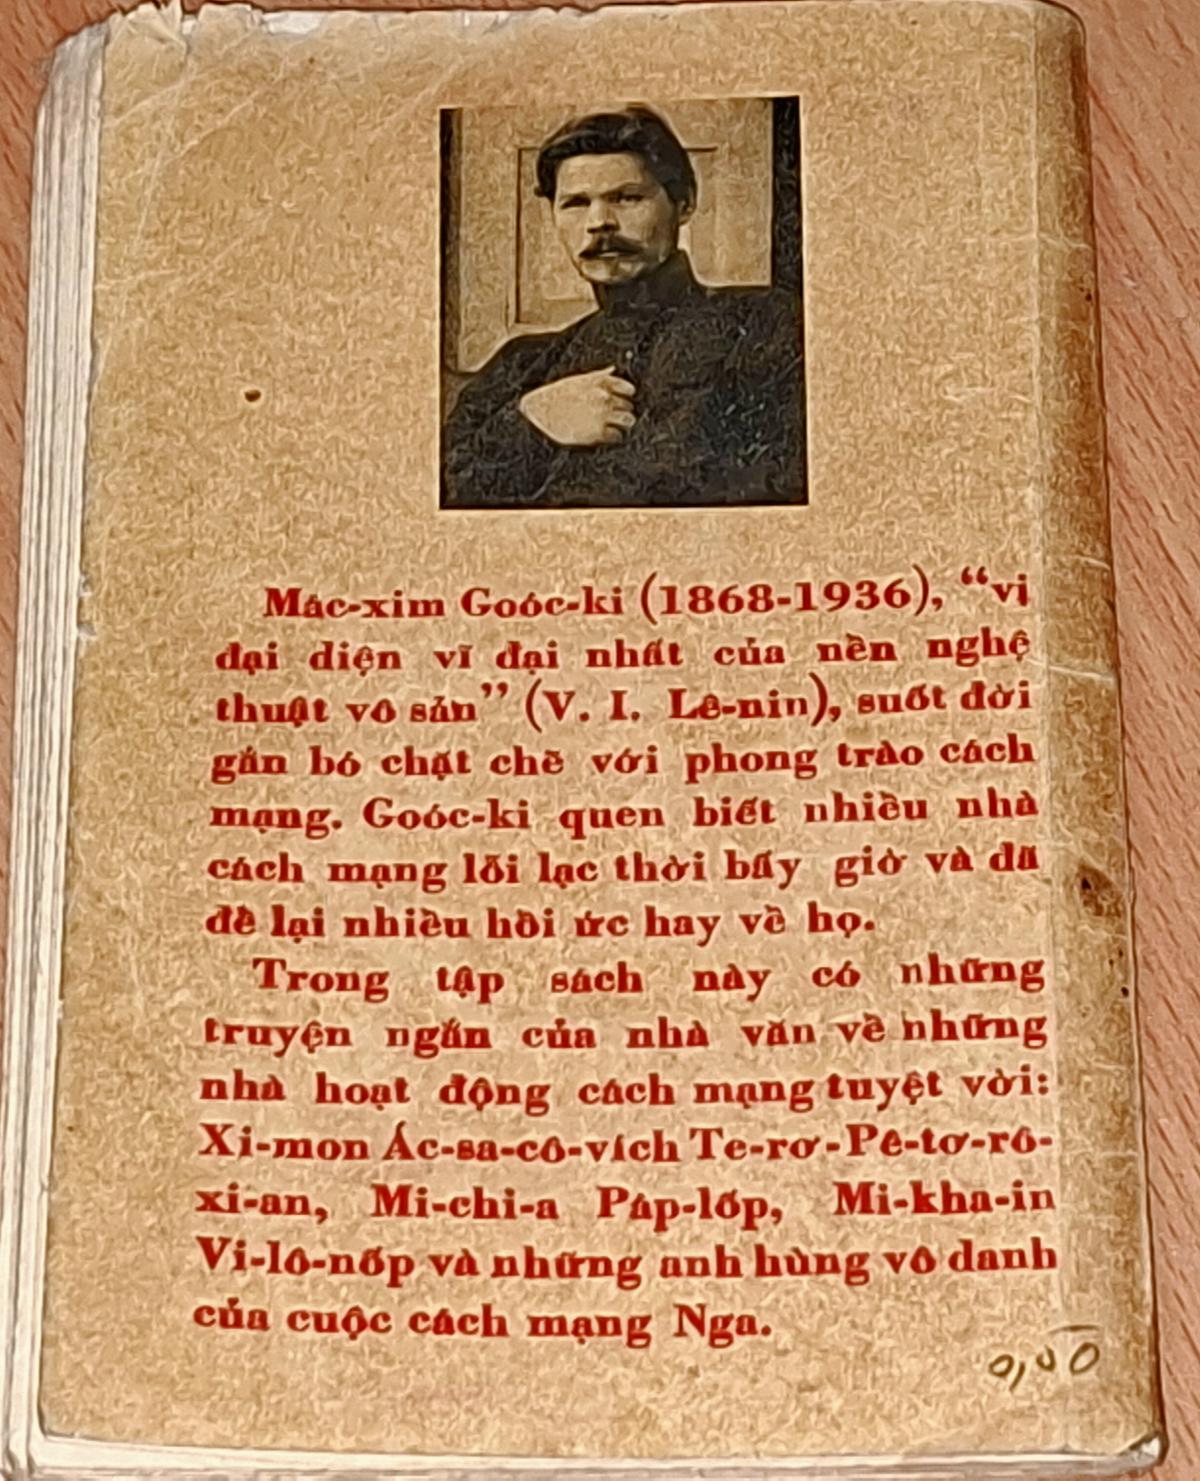 Mác-xim Goóc-ki (1868-1936), “vị
đại diện vĩ đại nhất của nền nghệ
thuật vô sản” (V. I. Lê-nin), suốt đời
gắn bó chặt chẽ với phong trào cách
mạng. Goóc-ki quen biết nhiều nhà
cách mạng lỗi lạc thời bấy giờ và đã
để lại nhiều hồi ức hay về họ.
Trong tập sách này có những
truyện ngắn của nhà văn về những
nhà hoạt động cách mạng tuyệt vời:
Xi-mon Ác-sa-cô-vích Te-rơ-Pê-tơ-rô-
xi-an, Mi-chi-a Páp-lốp, Mi-kha-in
Vi-lô-nốp và những anh hùng vô danh
của cuộc cách mạng Nga.